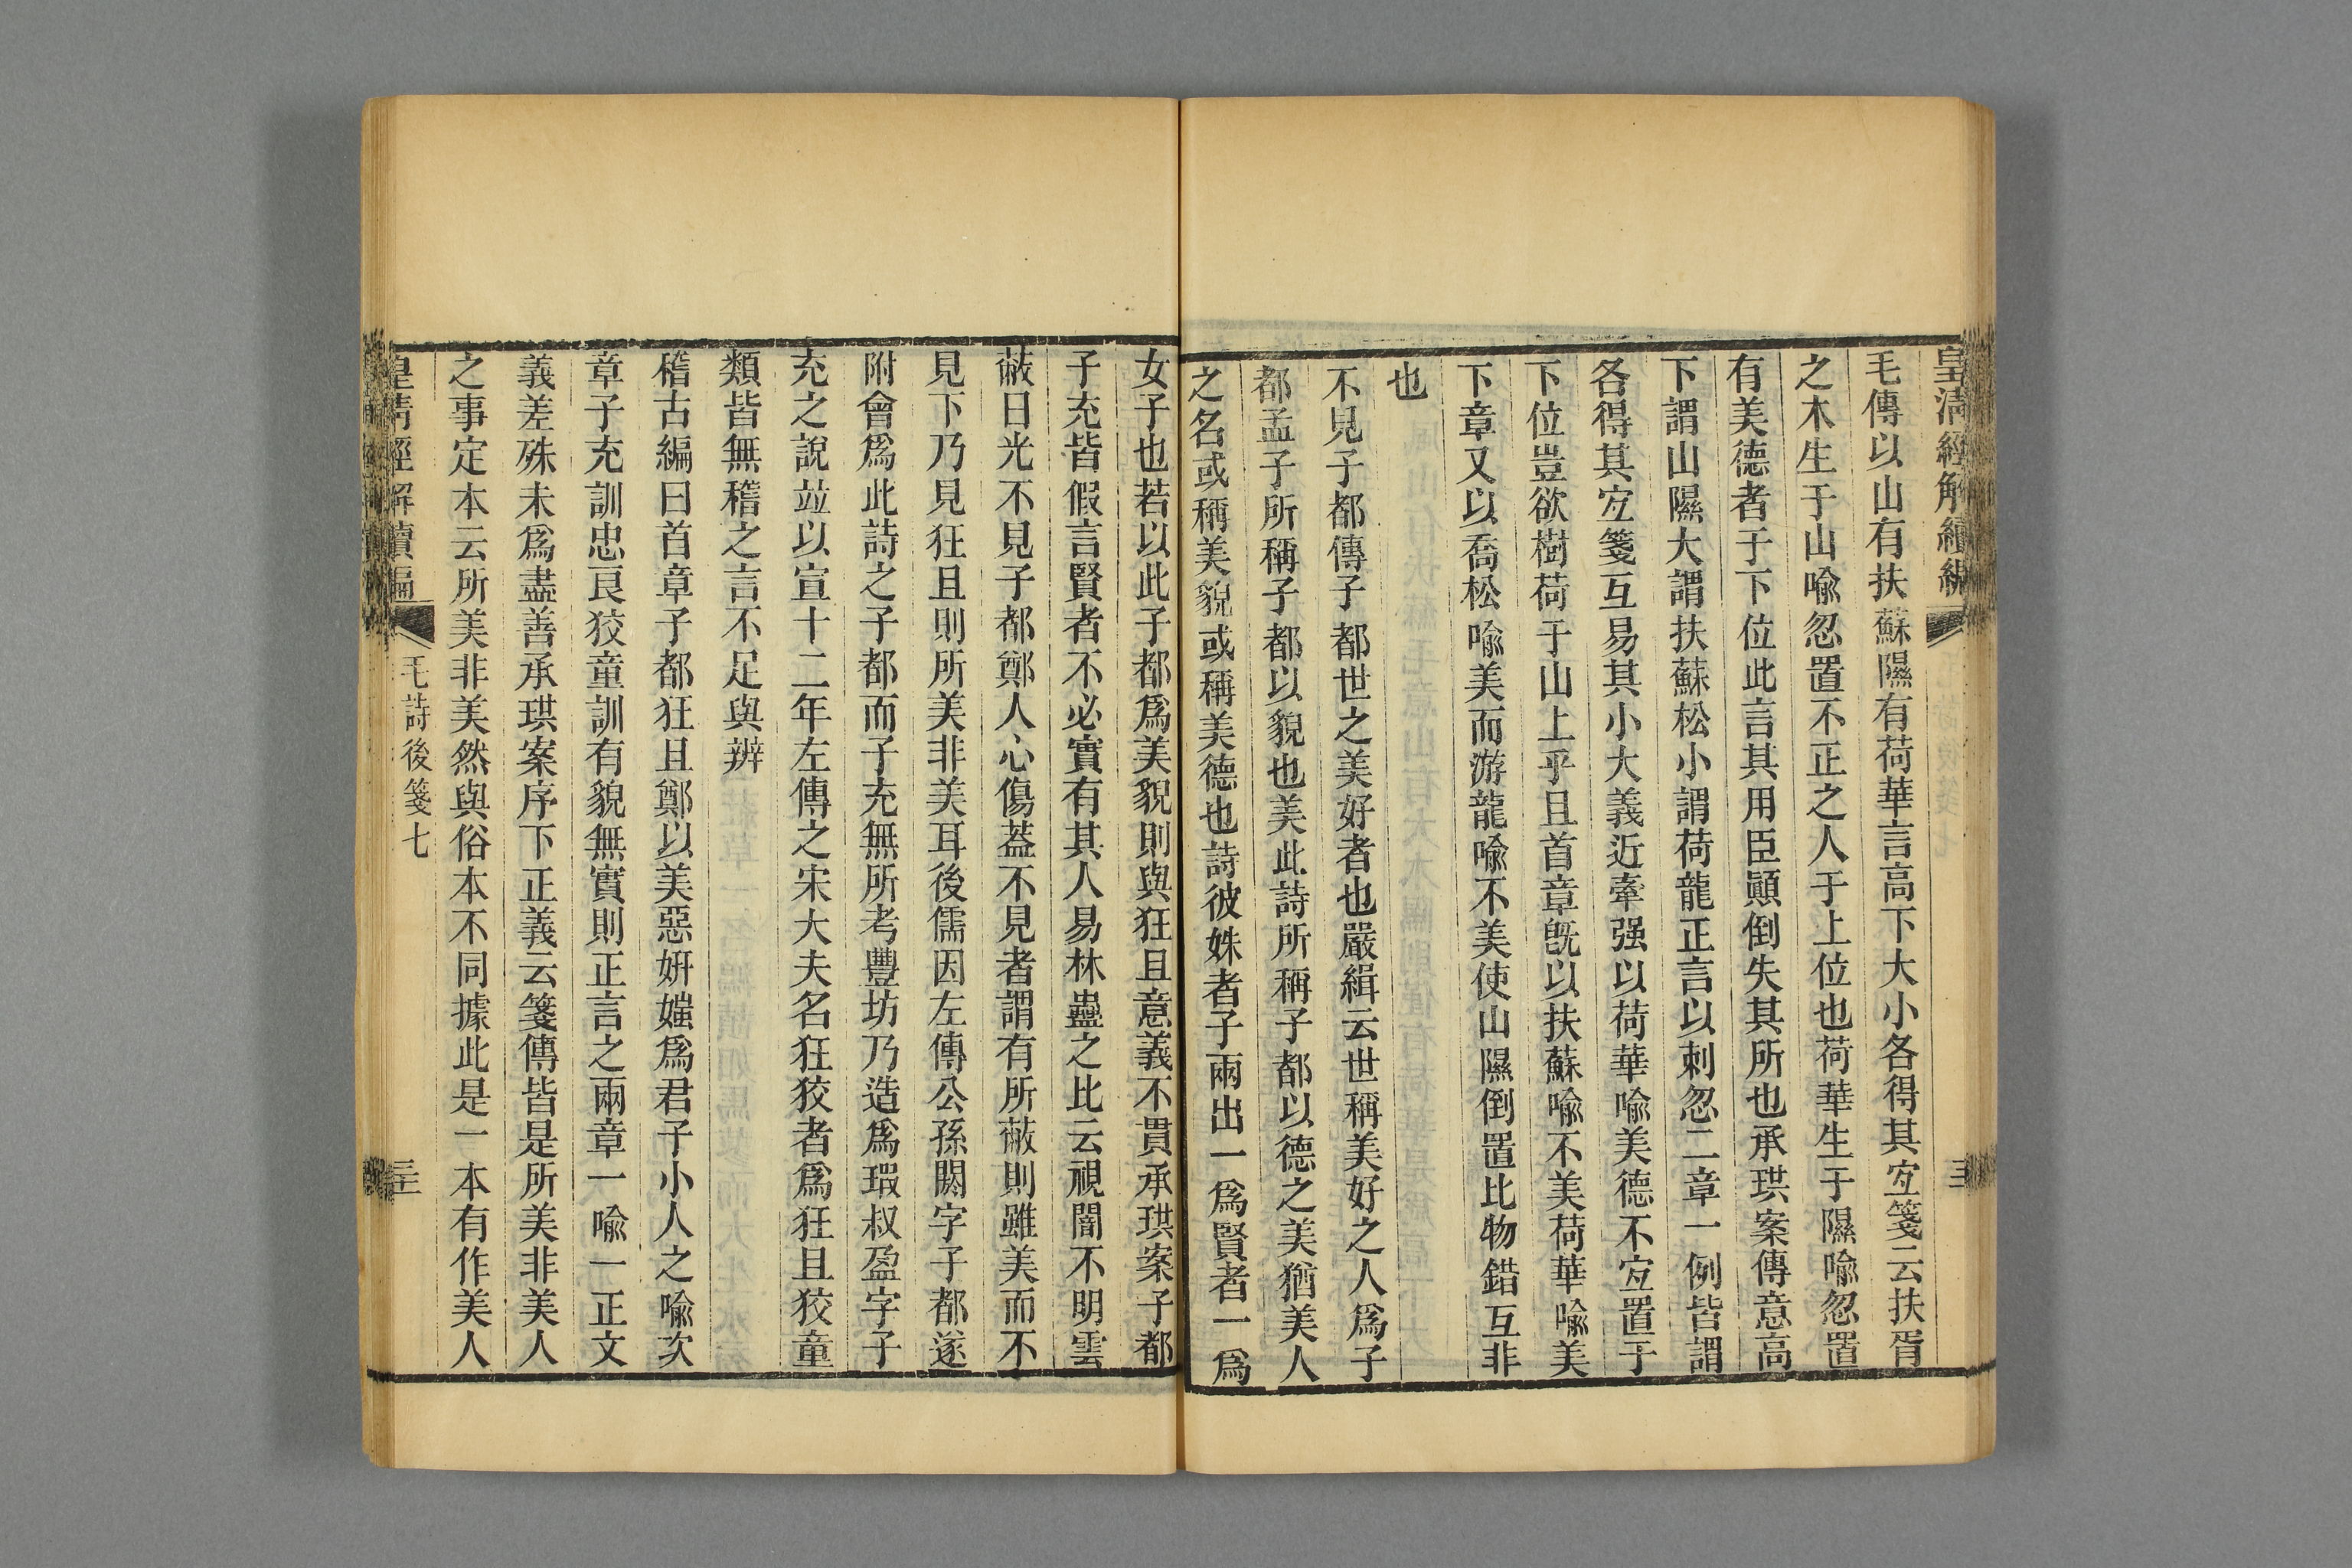 皇清經解續編
毛傳以山有扶蘇隰有荷華言高下大小各得其宐箋云扶胥
之木生于山喻忽置不正之人于上位也荷華生于隰喻忽置
有美德者于下位此言其用臣顚倒失其所也承珙案傳意高
下謂山隰大謂扶蘇松小謂荷龍正言以刺忽二章一例皆謂
各得其宐箋互易其小大義近牽强以荷華喻美德不宐置于
下位豈欲樹荷于山上乎且首章旣以扶蘇喻不美荷華喻美
下章又以喬松喻美而游龍喻不美使山隰倒置比物錯互非
也
不見子都傳子都世之美好者也嚴緝云世稱美好之人爲子
都孟子所稱子都以貌也美此詩所稱子都以德之美猶美人
之名或稱美貌或稱美德也詩彼姝者子兩出一爲賢者一爲
女子也若以此子都爲美貌則與狂且意義不貫承珙案子都
子充皆假言賢者不必實有其人易林蠱之比云視闇不明雲
蔽日光不見子都鄭人心傷葢不見者謂有所蔽則雖美而不
見下乃見狂且則所美非美耳後儒因左傳公孫閼字子都遂
附會爲此詩之子都而子充無所考豐坊乃造爲瑕叔盈字子
充之說竝以宣十二年左傳之宋大夫名狂狡者爲狂且狡童
類皆無稽之言不足與辨
稽古編曰首章子都狂且鄭以美惡姸媸爲君子小人之喻次
章子充訓忠良狡童訓有貌無實則正言之兩章一喻一正文
義差殊未爲盡善承珙案序下正義云箋傳皆是所美非美人
之事定本云所美非美然與俗本不同據此是一本有作美人
皇清經解續編
毛詩後箋七